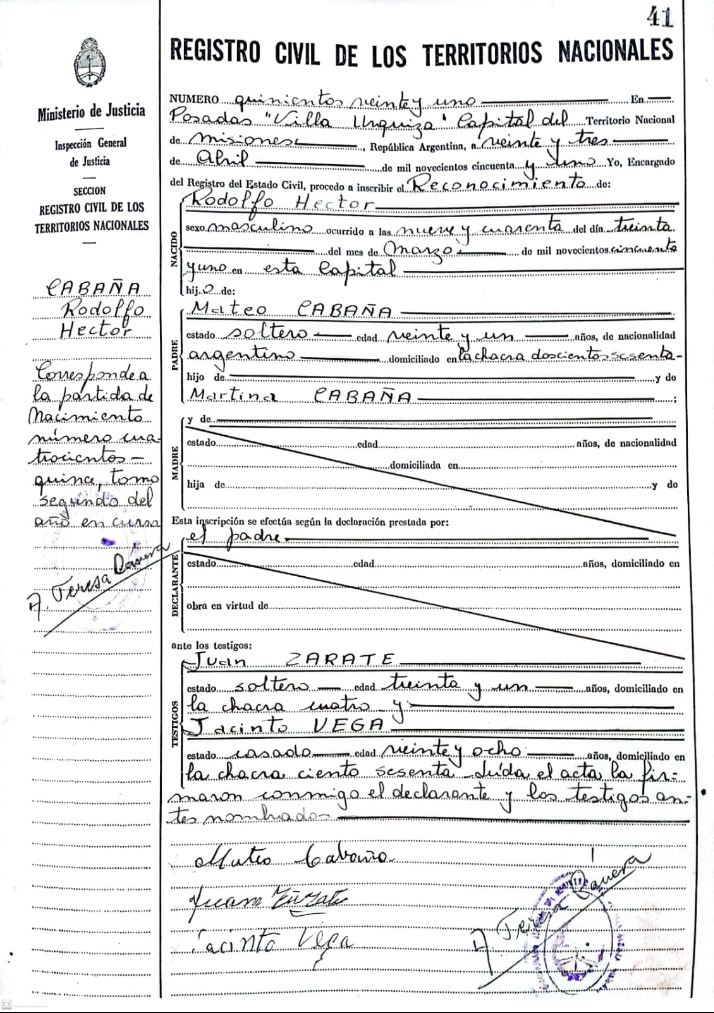 41
REGISTRO CIVIL DE LOS TERRITORIOS NACIONALES
Ministerio de Justicia
Inspección General
de Justicia
SECCION
REGISTRO CIVIL DE LOS
TERRITORIOS NACIONALES
CABAÑA
Rodolfo
Hector
Corresponde a
la partida de
Nacimiento
número cua-
trocientos -
quince, tomo
segundo del
año en curso
NUMERO quinientos veinte y uno En
Posadas "Villa Urquiza" Capital del Territorio Nacional
de Misiones, República Argentina, a veinte y tres
de Abril de mil novecientos cincuenta y uno Yo, Encargado
del Registro del Estado Civil, procedo a inscribir el Reconocimiento de:
Rodolfo Hector
NACIDO
sexo masculino ocurrido a las nueve y cuarenta del día treinta
del mes de Marzo de mil novecientos cincuenta
y uno en esta Capital
hijo de:
PADRE
Mateo CABAÑA
estado soltero edad veinte y un años, de nacionalidad
argentino domiciliado en la chacra doscientos sesenta-
hijo de y de
Martina CABAÑA ;
MADRE
y de
estado edad años, de nacionalidad
domiciliada en
hija de y de
Esta inscripción se efectúa según la declaración prestada por:
el padre
DECLARANTE
estado edad años, domiciliado en
obra en virtud de
ante los testigos:
TESTIGOS
Juan ZARATE
estado soltero edad treinta y un años, domiciliado en
la chacra cuatro y
Jacinto VEGA
estado casado edad veinte y ocho años, domiciliado en
la chacra ciento sesenta. Leída el acta, la fir-
maron conmigo el declarante y los testigos an-
tes nombrados
Mateo Cabaña
Juan Zárate
Jacinto Vega